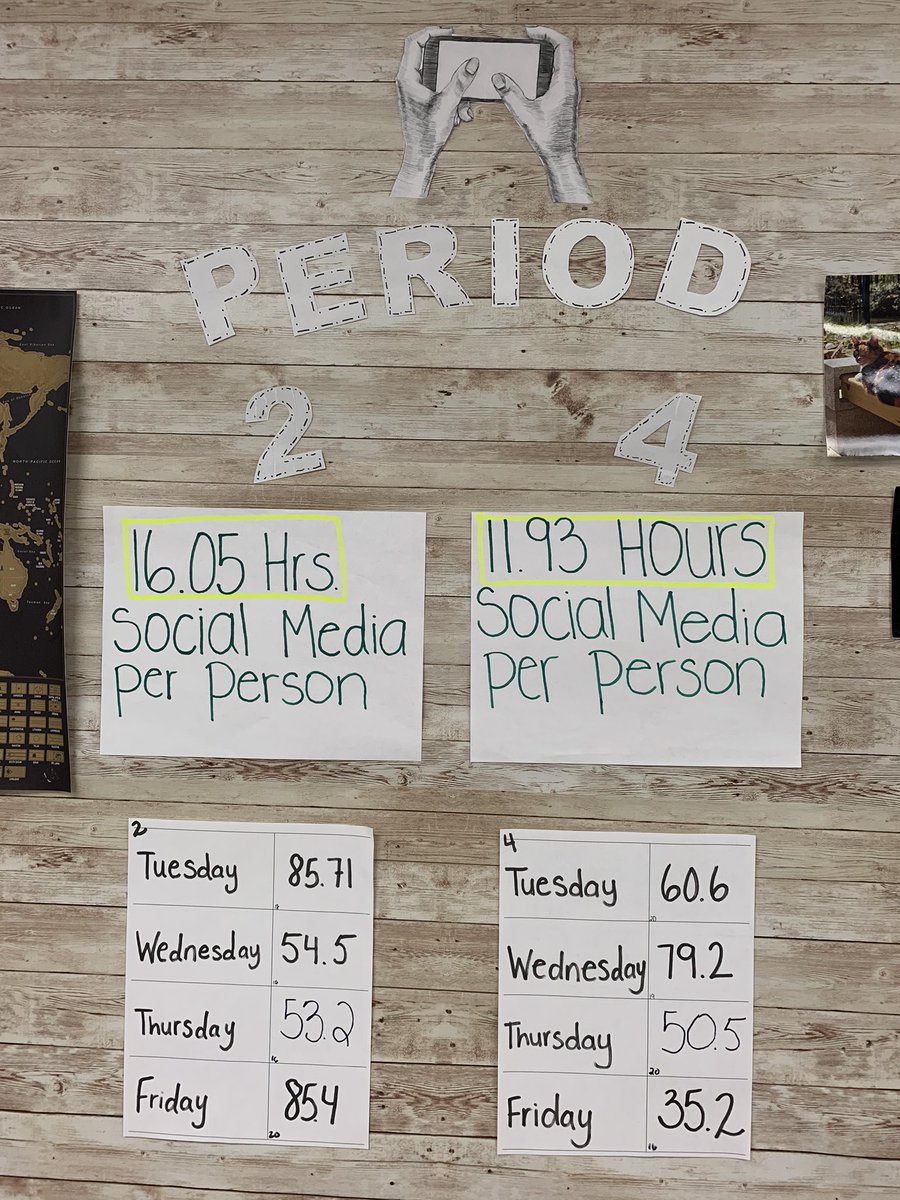 PERIOD
2
16.05 Hrs.
Social Media
per person
4
11.93 Hours
Social Media
per person
2
Tuesday 85.71
Wednesday 54.5
Thursday 53.2
16
Friday 85.4
20
4
Tuesday 60.6
20
Wednesday 79.2
Thursday 50.5
20
Friday 35.2
16
NORTH PACIFIC OCEAN